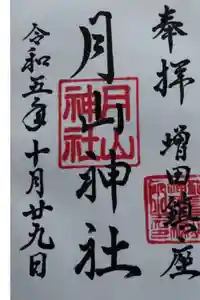 奉拝 増田鎮座
月山神社
月山
神社
令和五年十月廿九日